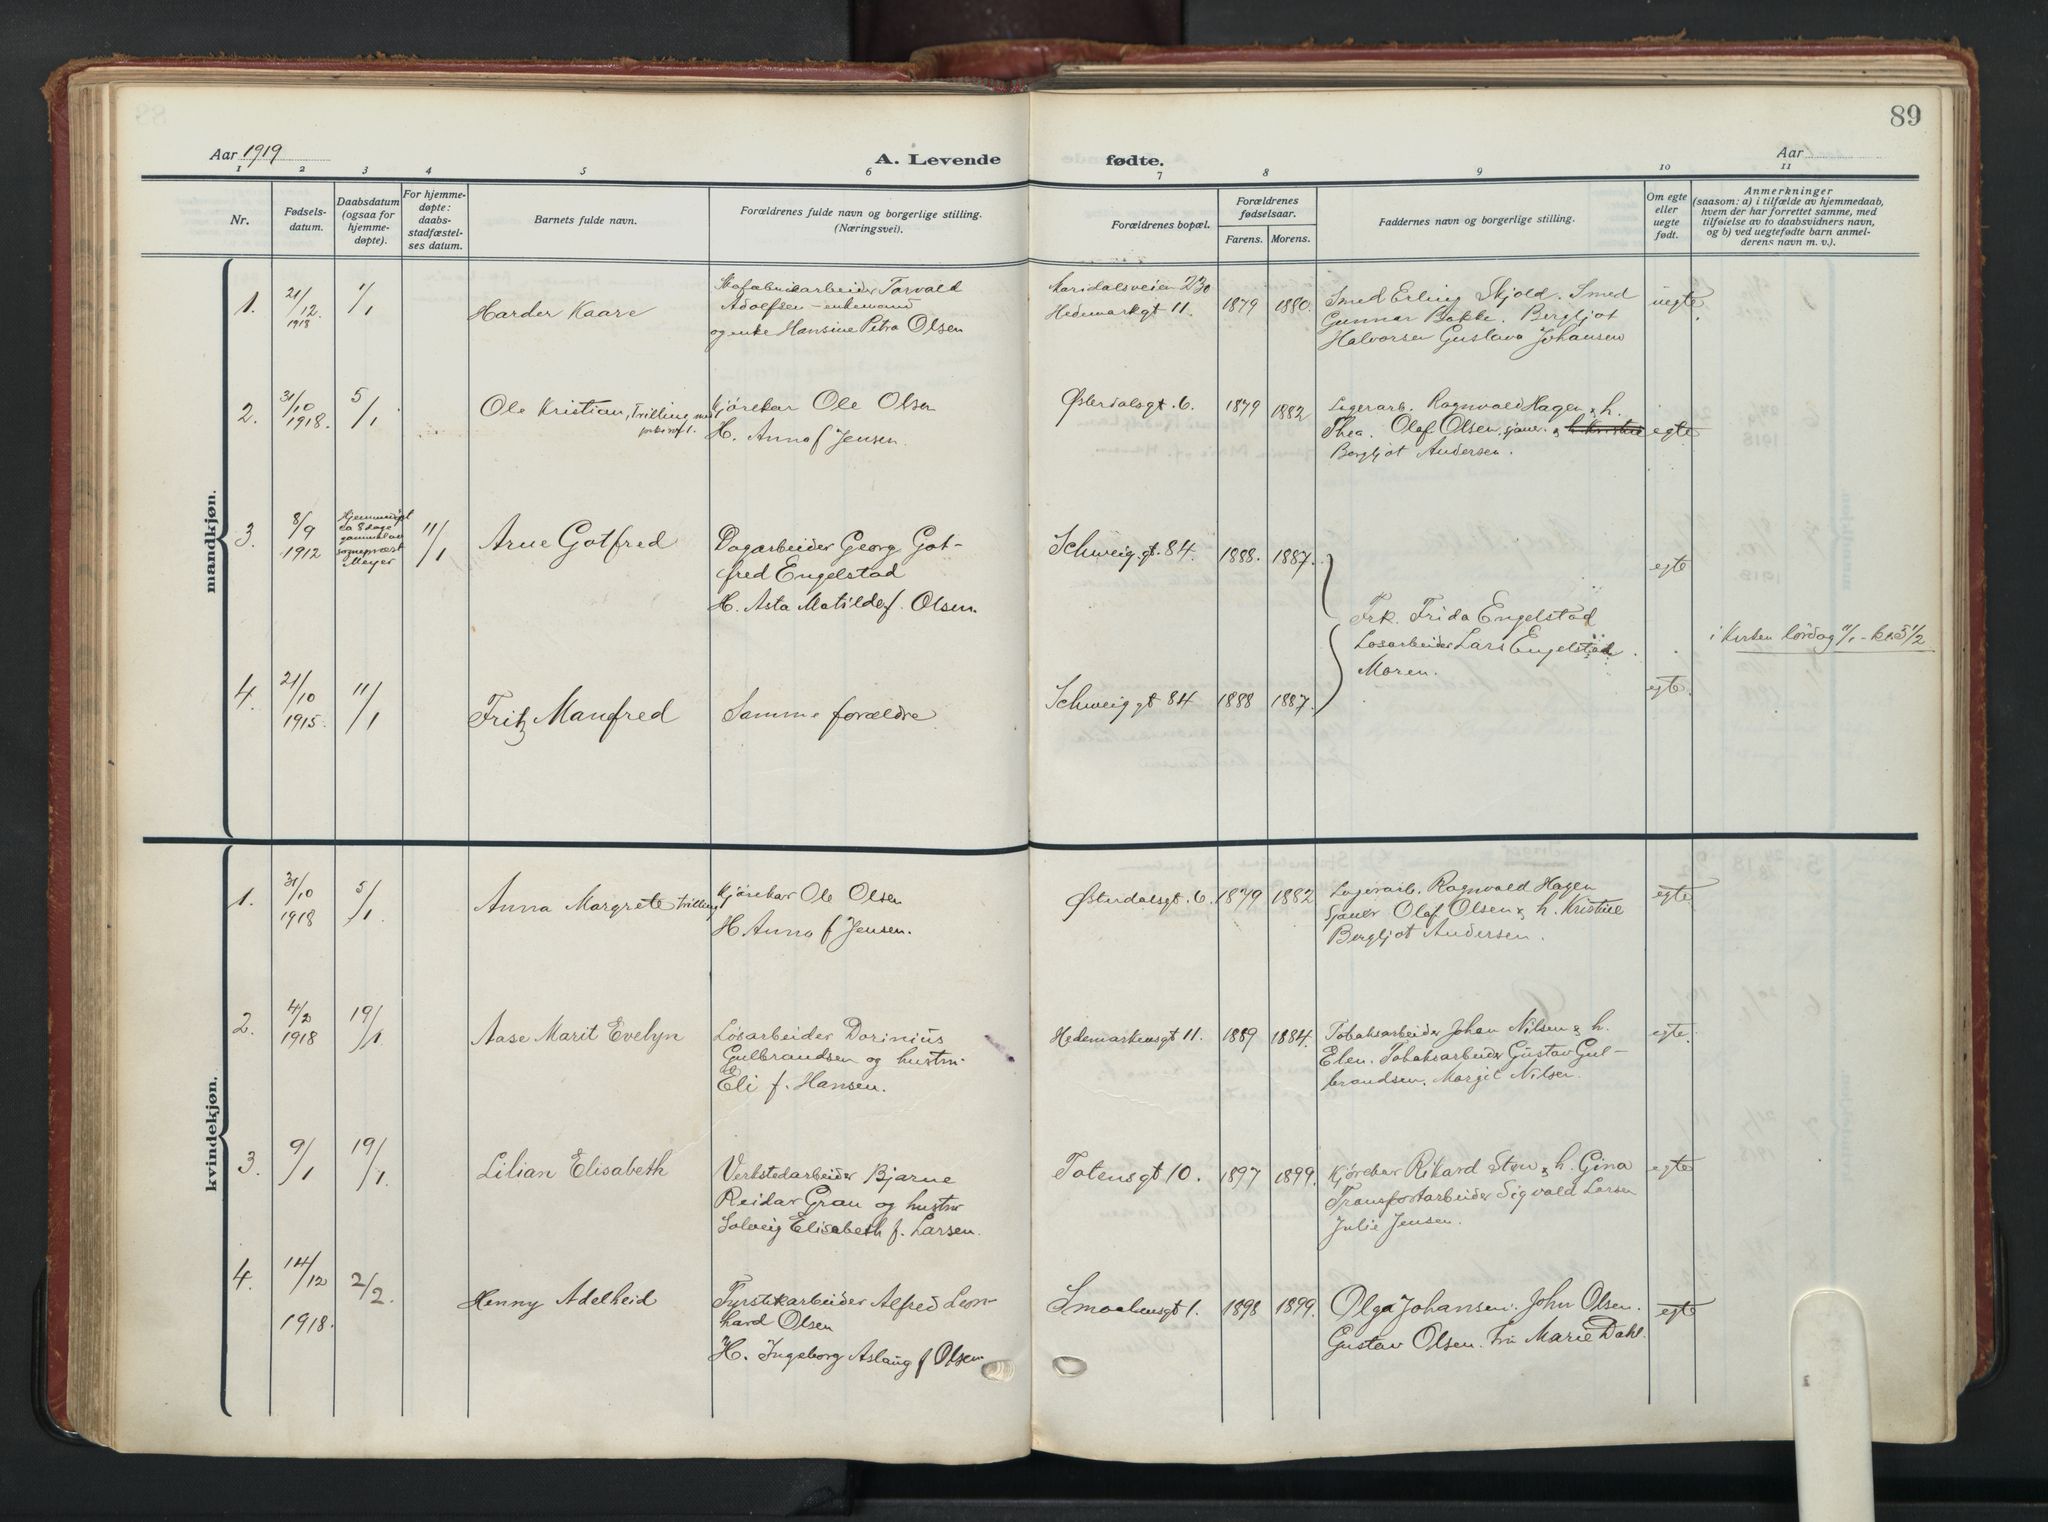 89
Aar 1919
A. Levende
fødte.
Aar
1 2 3 4 5 6 7 8 9 10 11
Nr.
Fødsels-
datum.
Daabsdatum
(ogsaa for
hjemme-
døpte).
For hjemme-
døpte:
daabs-
stadfæstel-
ses datum.
Barnets fulde navn.
Forældrenes fulde navn og borgerlige stilling.
(Næringsvei).
Forældrenes bopæl.
Forældrenes
fødselsaar.
Farens. Morens.
Faddernes navn og borgerlige stilling.
Om egte
eller
uegte
født.
Anmerkninger
(saasom: a) i tilfælde av hjemmedaab,
hvem der har forrettet samme, med
tilføielse av to daabsvidners navn,
og b) ved uegtefødte barn anmel-
derens navn m. v.).
mandkjøn.
1.
21/12
1918
1/1
Harder Kaare
Skofabrikarbeider Torvald
Adolfsen - enkemand
og enke Hansine Petra Olsen
Maridalsveien 230
Hedemarkgt 11.
1879
1880.
Smed Erling Skjold. Smed
Gunnar Bakke. Bergljot
Halvorsen Gustava Johansen
uegte
2.
31/10
1918.
5/1
Ole Kristian, Trilling med
Kjørekar Ole Olsen
H. Anna f Jensen.
Østerdalsgt. 6.
1879
1882
Lagerarb. Ragnvald Hagen & h.
Thea. Olaf Olsen, sjauer. & h. Kristine
Bergljot Andersen.
egte
3.
8/9
1912
Hjemmedøpt
ca 8 dage
gammel av
sogneprest
Meyer
11/1
Arne Gotfred
Dagarbeider Georg Got-
fred Engelstad
H. Asta Matilde f. Olsen.
Schweig. gt. 84.
1888.
1887.
egte
Frk. Frida Engelstad
Løsarbeider Lars Engelstad
Moren.
i Kirken lørdag 11/1 - kl 5 1/2
4.
21/10
1915.
11/1
Fritz Manfred
Samme forældre
Schweig gt 84
1888
1887.
egte.
kvindekjøn.
1.
31/10
1918
5/1
Anna Margrete trilling
Kjørekar Ole Olsen
H. Anna f Jensen.
Østerdalsgt. 6.
1879
1882
Lagerarb. Ragnvald Hagen
Sjauer Olaf Olsen & h. Kristine
Bergljot Andersen.
egte
2.
4/2
1918
19/1
Aase Marit Evelyn
Løsarbeider Dorinius
Gulbrandsen og hustru
Eli f. Hansen.
Hedemarkensgt 11.
1889
1884.
Tobaksarbeider Johan Nilsen & h.
Elen. Tobaksarbeider Gustav Gul-
brandsen. Margit Nilsen.
egte.
3.
9/1
19/1
Lilian Elisabeth
Verkstedarbeider Bjarne
Reidar Gran og hustru
Solveig Elisabeth f. Larsen.
Totensgt 10.
1897
1899.
Kjørekar Rikard Sten & h. Gina
Transportarbeider Sigvald Larsen
Julie Jensen.
egte
4.
14/12
1918.
2/2.
Henny Adelheid
Fyrstikarbeider Alfred Leon-
hard Olsen
H. Ingeborg Aslaug f Olsen
Smaalensgt 1.
1898
1899.
Olga Johansen. John Olsen.
Gustav Olsen. Fru Marie Dahl.
egte